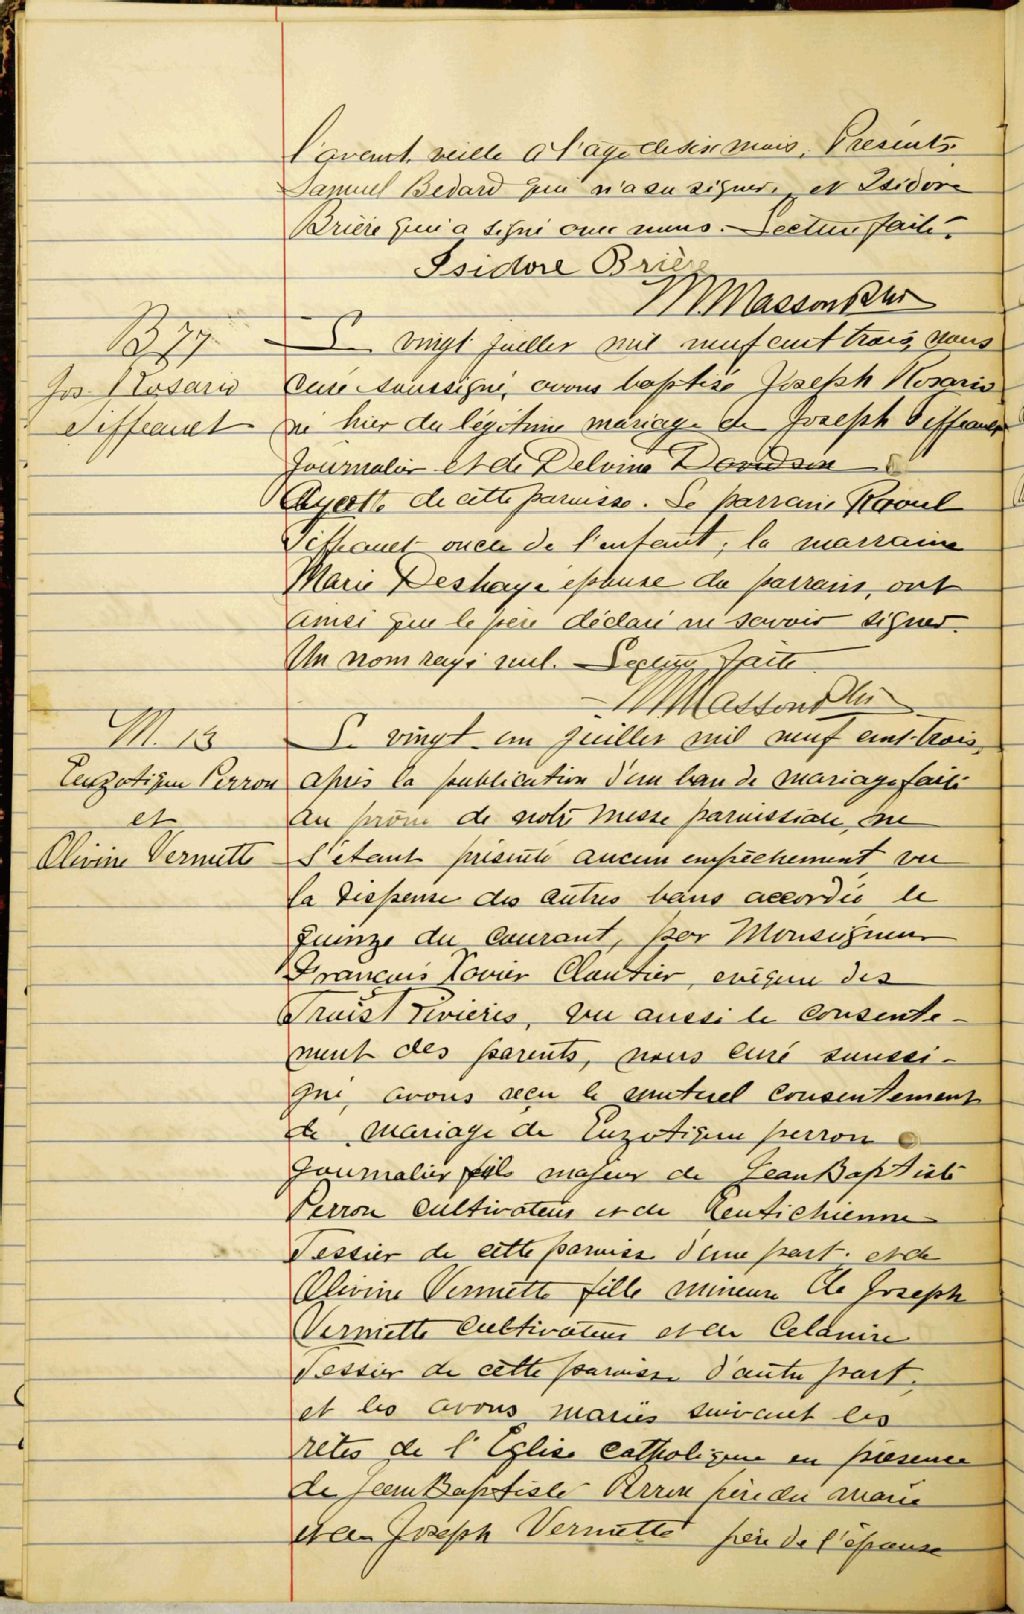 l'avant veille à l'âge de six mois. Présents
Samuel Bedard qui n'a su signer, et Isidore
Brière qui a signé avec nous. Lecture faite.
Isidore Brière
M Masson Ptre
B 77
Jos. Rosario
Tiffeault
Le vingt juillet mil neuf cent trois, nous
curé soussigné, avons baptisé Joseph Rosario
né hier du légitime mariage de Joseph Tiffeault
journalier et de Delvina Davidson
Ayotte de cette paroisse. Le parrain Raoul
Tiffeault oncle de l'enfant, la marraine
Marie Deshaye épouse du parrain, ont
ainsi que le père déclaré ne savoir signer.
Un nom rayé nul. Lecture faite
M Masson Ptre
M. 13
Euzotique Perron
et
Olivine Vermette
Le vingt-un juillet mil neuf cent-trois,
après la publication d'un ban de mariage faite
au prône de notre messe paroissiale, ne
s'étant présenté aucun empêchement, vu
la dispense des autres bans accordée le
quinze du courant, par Monseigneur
François Xavier Cloutier, evêque des
Trois Rivières, vu aussi le consente-
ment des parents, nous curé soussi-
gné, avons reçu le mutuel consentement
de mariage de Euzotique perron
journalier fils majeur de Jean Baptiste
Perron cultivateur et de
Tessier de cette paroisse d'une part. et de
Olivine Vermette fille mineure de Joseph
Vermette cultivateur et de Celanire
Tessier de cette paroisse d'autre part,
et les avons mariés suivant les
rites de l'Eglise catholique en présence
de Jean Baptiste Perron père du marié
et de Joseph Vermette père de l'épouse